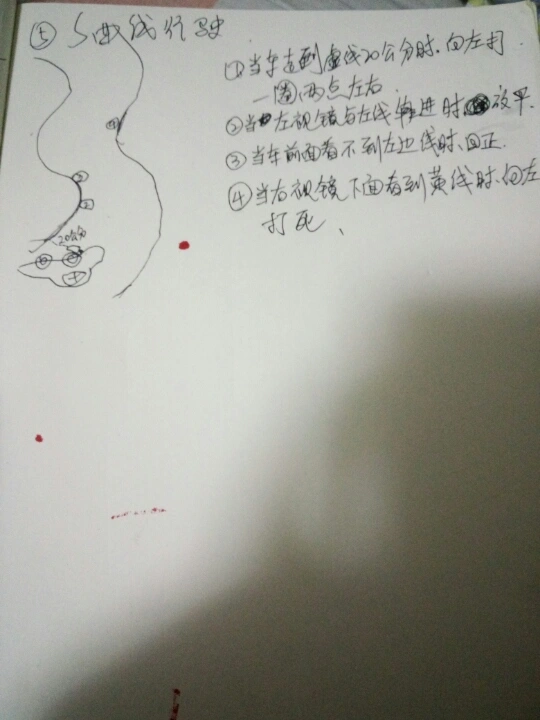 ⑤ S曲线行驶
①当车走到虚线20公分时.向左打
一圈,两点左右.
②当左视镜与左线 进时 放平.
③当车前面看不到左边线时、回正.
④当右视镜下面看到黄线时、向左
打死、
20公分